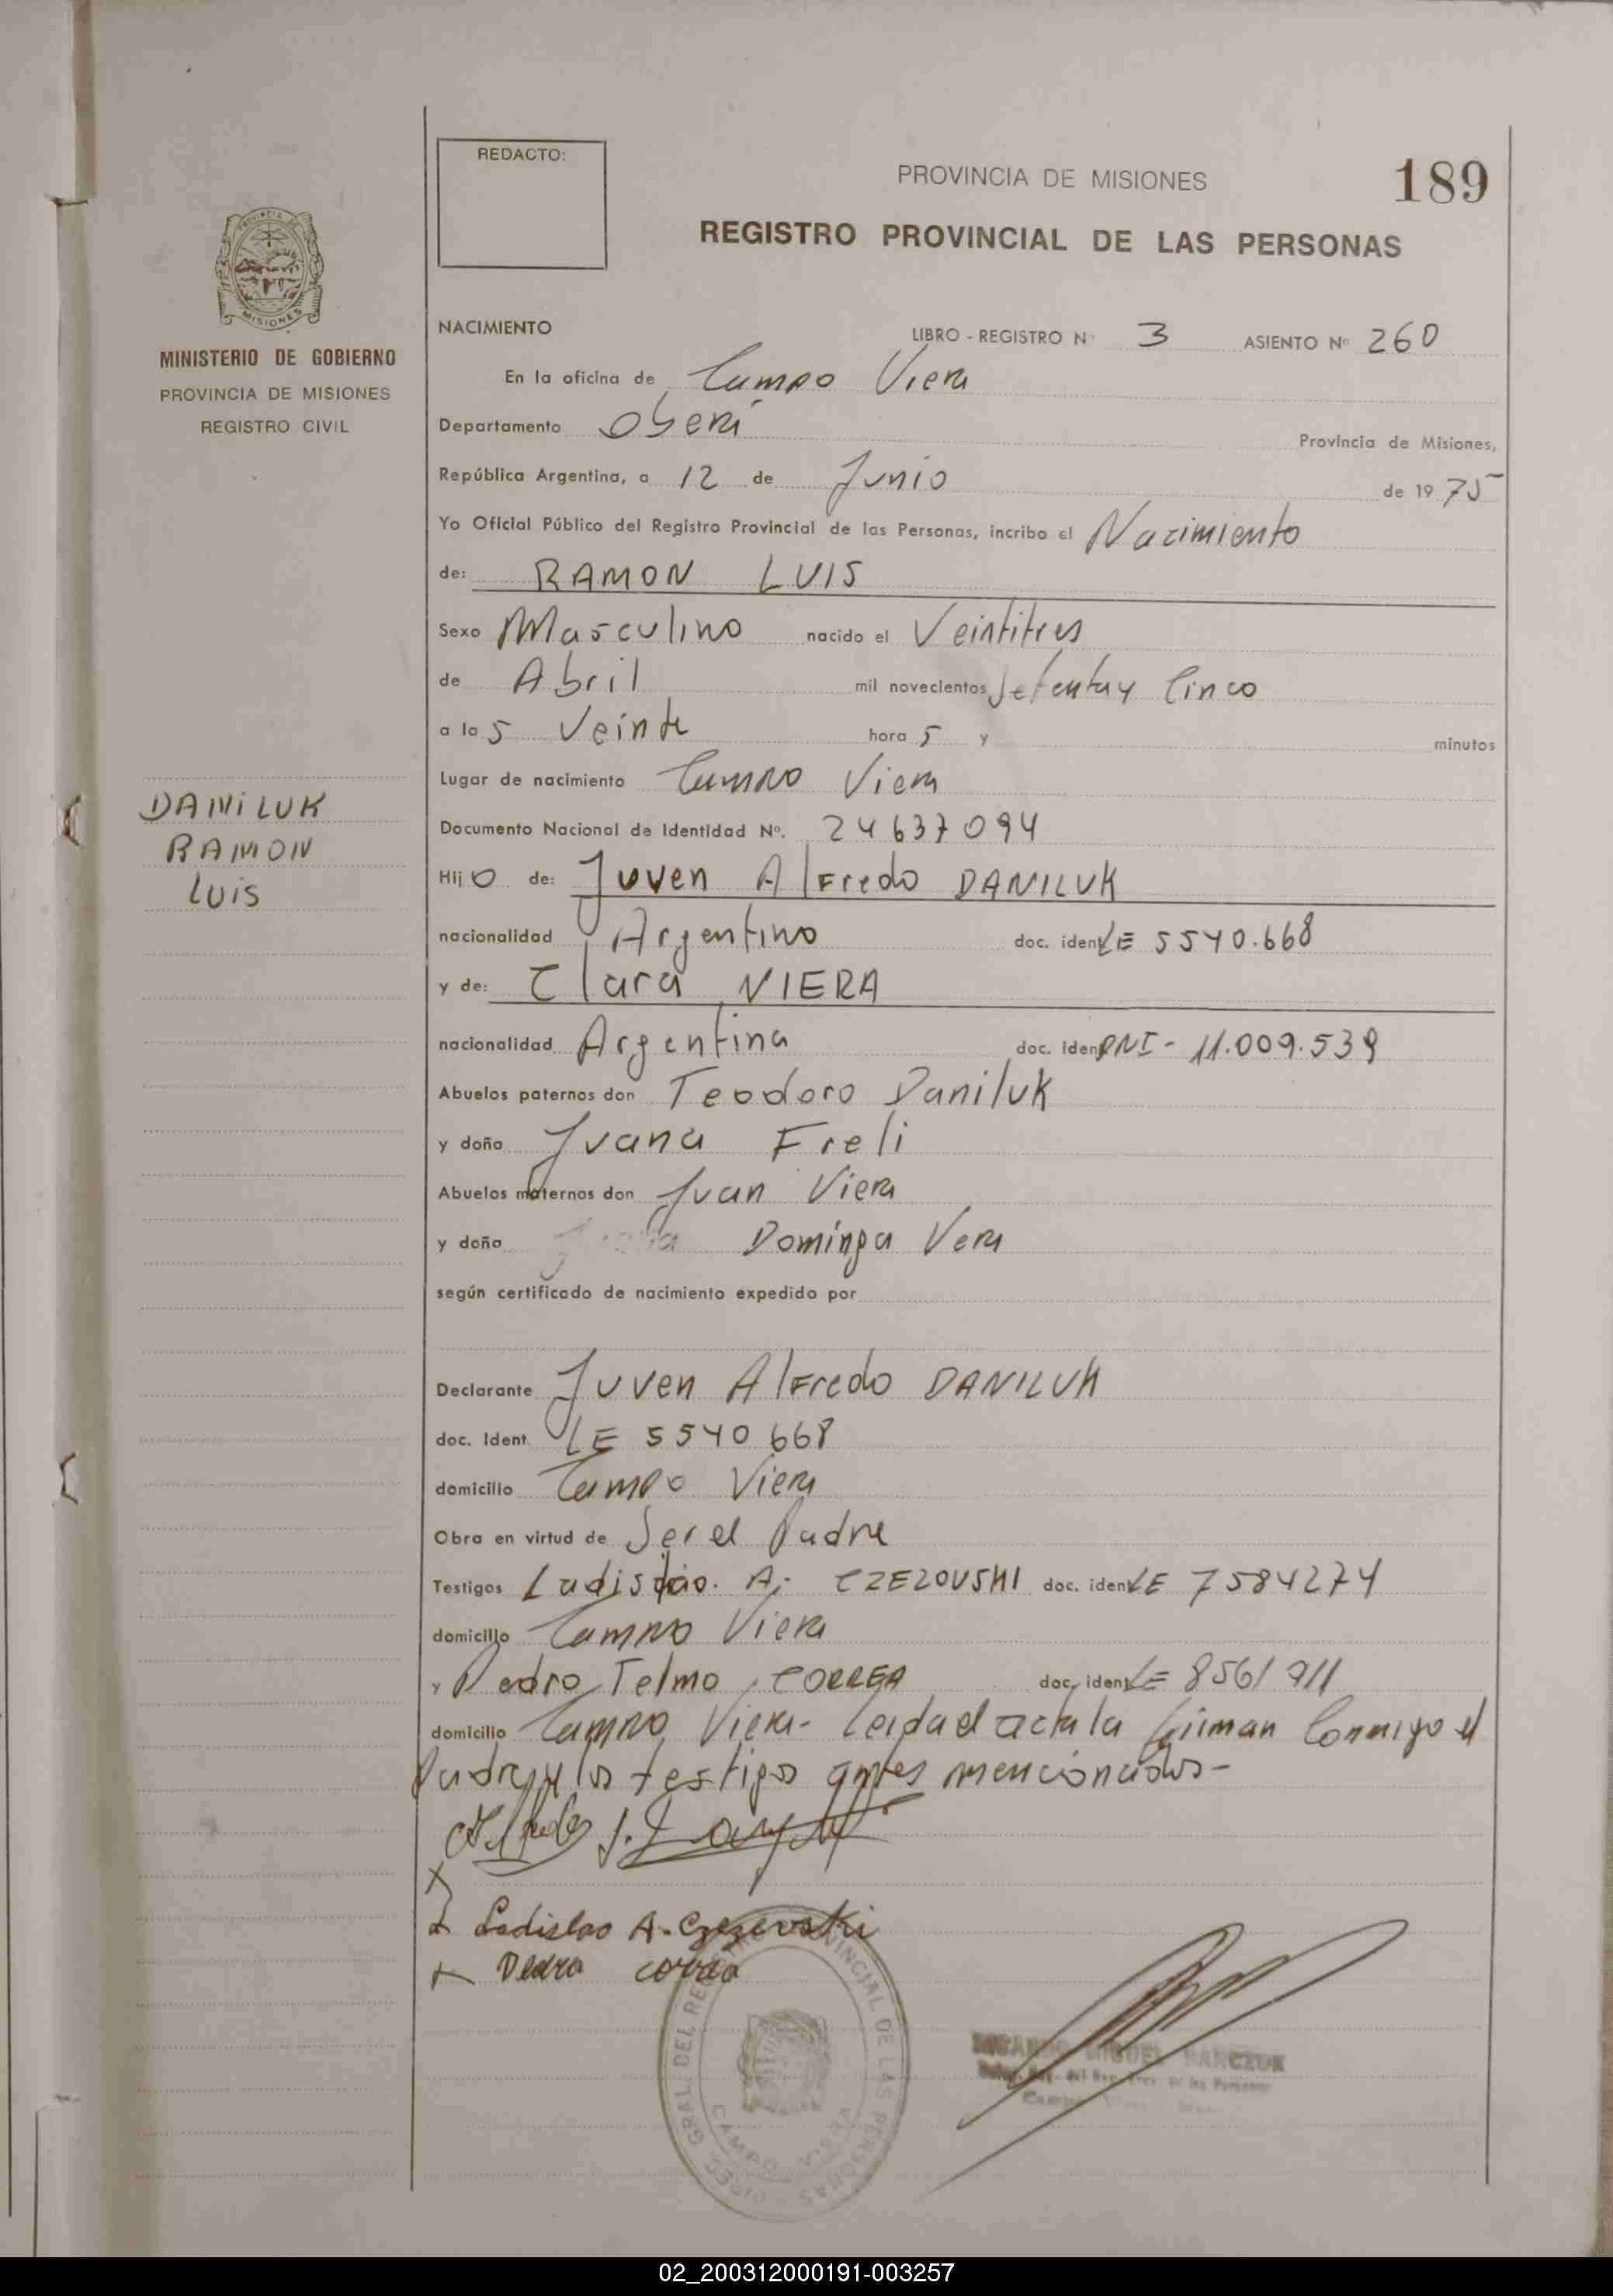 REDACTO:
PROVINCIA DE MISIONES
189
REGISTRO PROVINCIAL DE LAS PERSONAS
MISIONES
MINISTERIO DE GOBIERNO
PROVINCIA DE MISIONES
REGISTRO CIVIL
NACIMIENTO LIBRO - REGISTRO Nº 3 ASIENTO Nº 260
En la oficina de Campo Viera
Departamento Oberá Provincia de Misiones,
República Argentina, a 12 de Junio de 1975
Yo Oficial Público del Registro Provincial de las Personas, incribo el Nacimiento
de: RAMON LUIS
Sexo Masculino nacido el Veintitres
de Abril mil novecientos Setenta y Cinco
a las Veinte horas y minutos
Lugar de nacimiento Campo Viera
Documento Nacional de Identidad Nº. 24637094
DANILUK
RAMON
LUIS
Hijo de: Juven Alfredo DANILUK
nacionalidad Argentino doc. ident LE 5540.668
y de: Clara VIERA
nacionalidad Argentina doc. ident DNI - 11.009.539
Abuelos paternos don Teodoro Daniluk
y doña Juana Freli
Abuelos maternos don Juan Viera
y doña Dominga Vera
según certificado de nacimiento expedido por
Declarante Juven Alfredo DANILUK
doc. Ident. LE 5540668
domicilio Campo Viera
Obra en virtud de Ser el Padre
Testigos Ladislao. A. CZEZOUSKI doc. ident LE 7584274
domicilio Campo Viera
y Pedro Telmo CORREA doc. ident LE 8561911
domicilio Campo Viera - Leida el acta la firman Conmigo el
Padre y los testigos antes mencionados -
Ladislao A. Czezovski
Pedro correa
GRAL. DEL REGISTRO PROVINCIAL DE LAS PERSONAS
CAMPO VIERA
MIGUEL
02_200312000191-003257